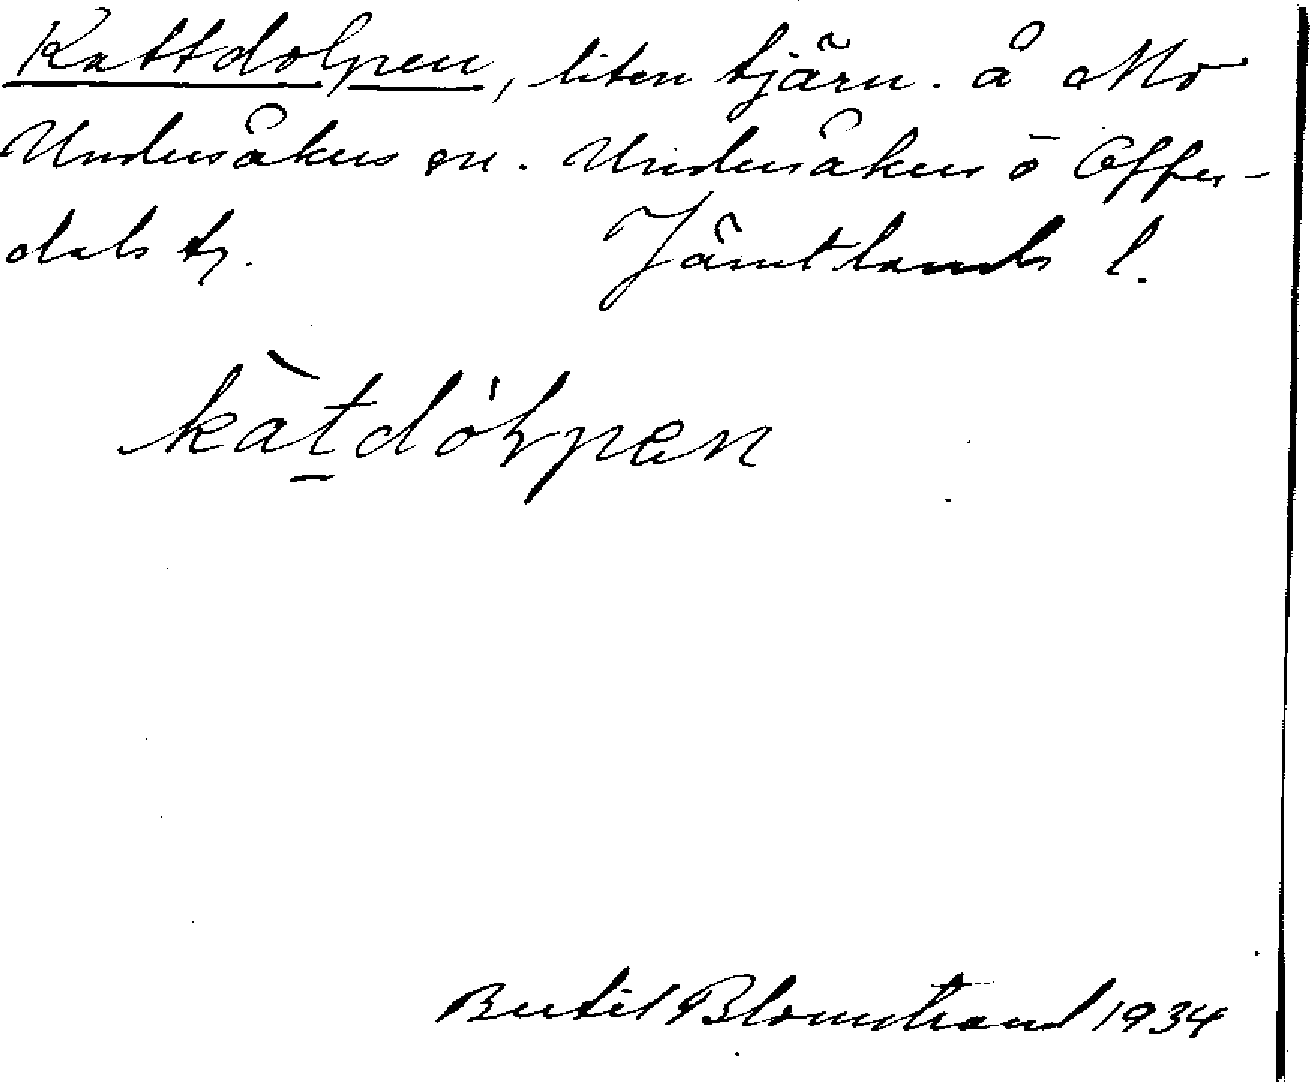 Kattdolpen, liten tjärn. å Mo
Undersåkers sn. Undersåkers o Offer-
dals tg. Jämtlands l.
kàt̠dóḷpen
Bertil Blomstrand 1934